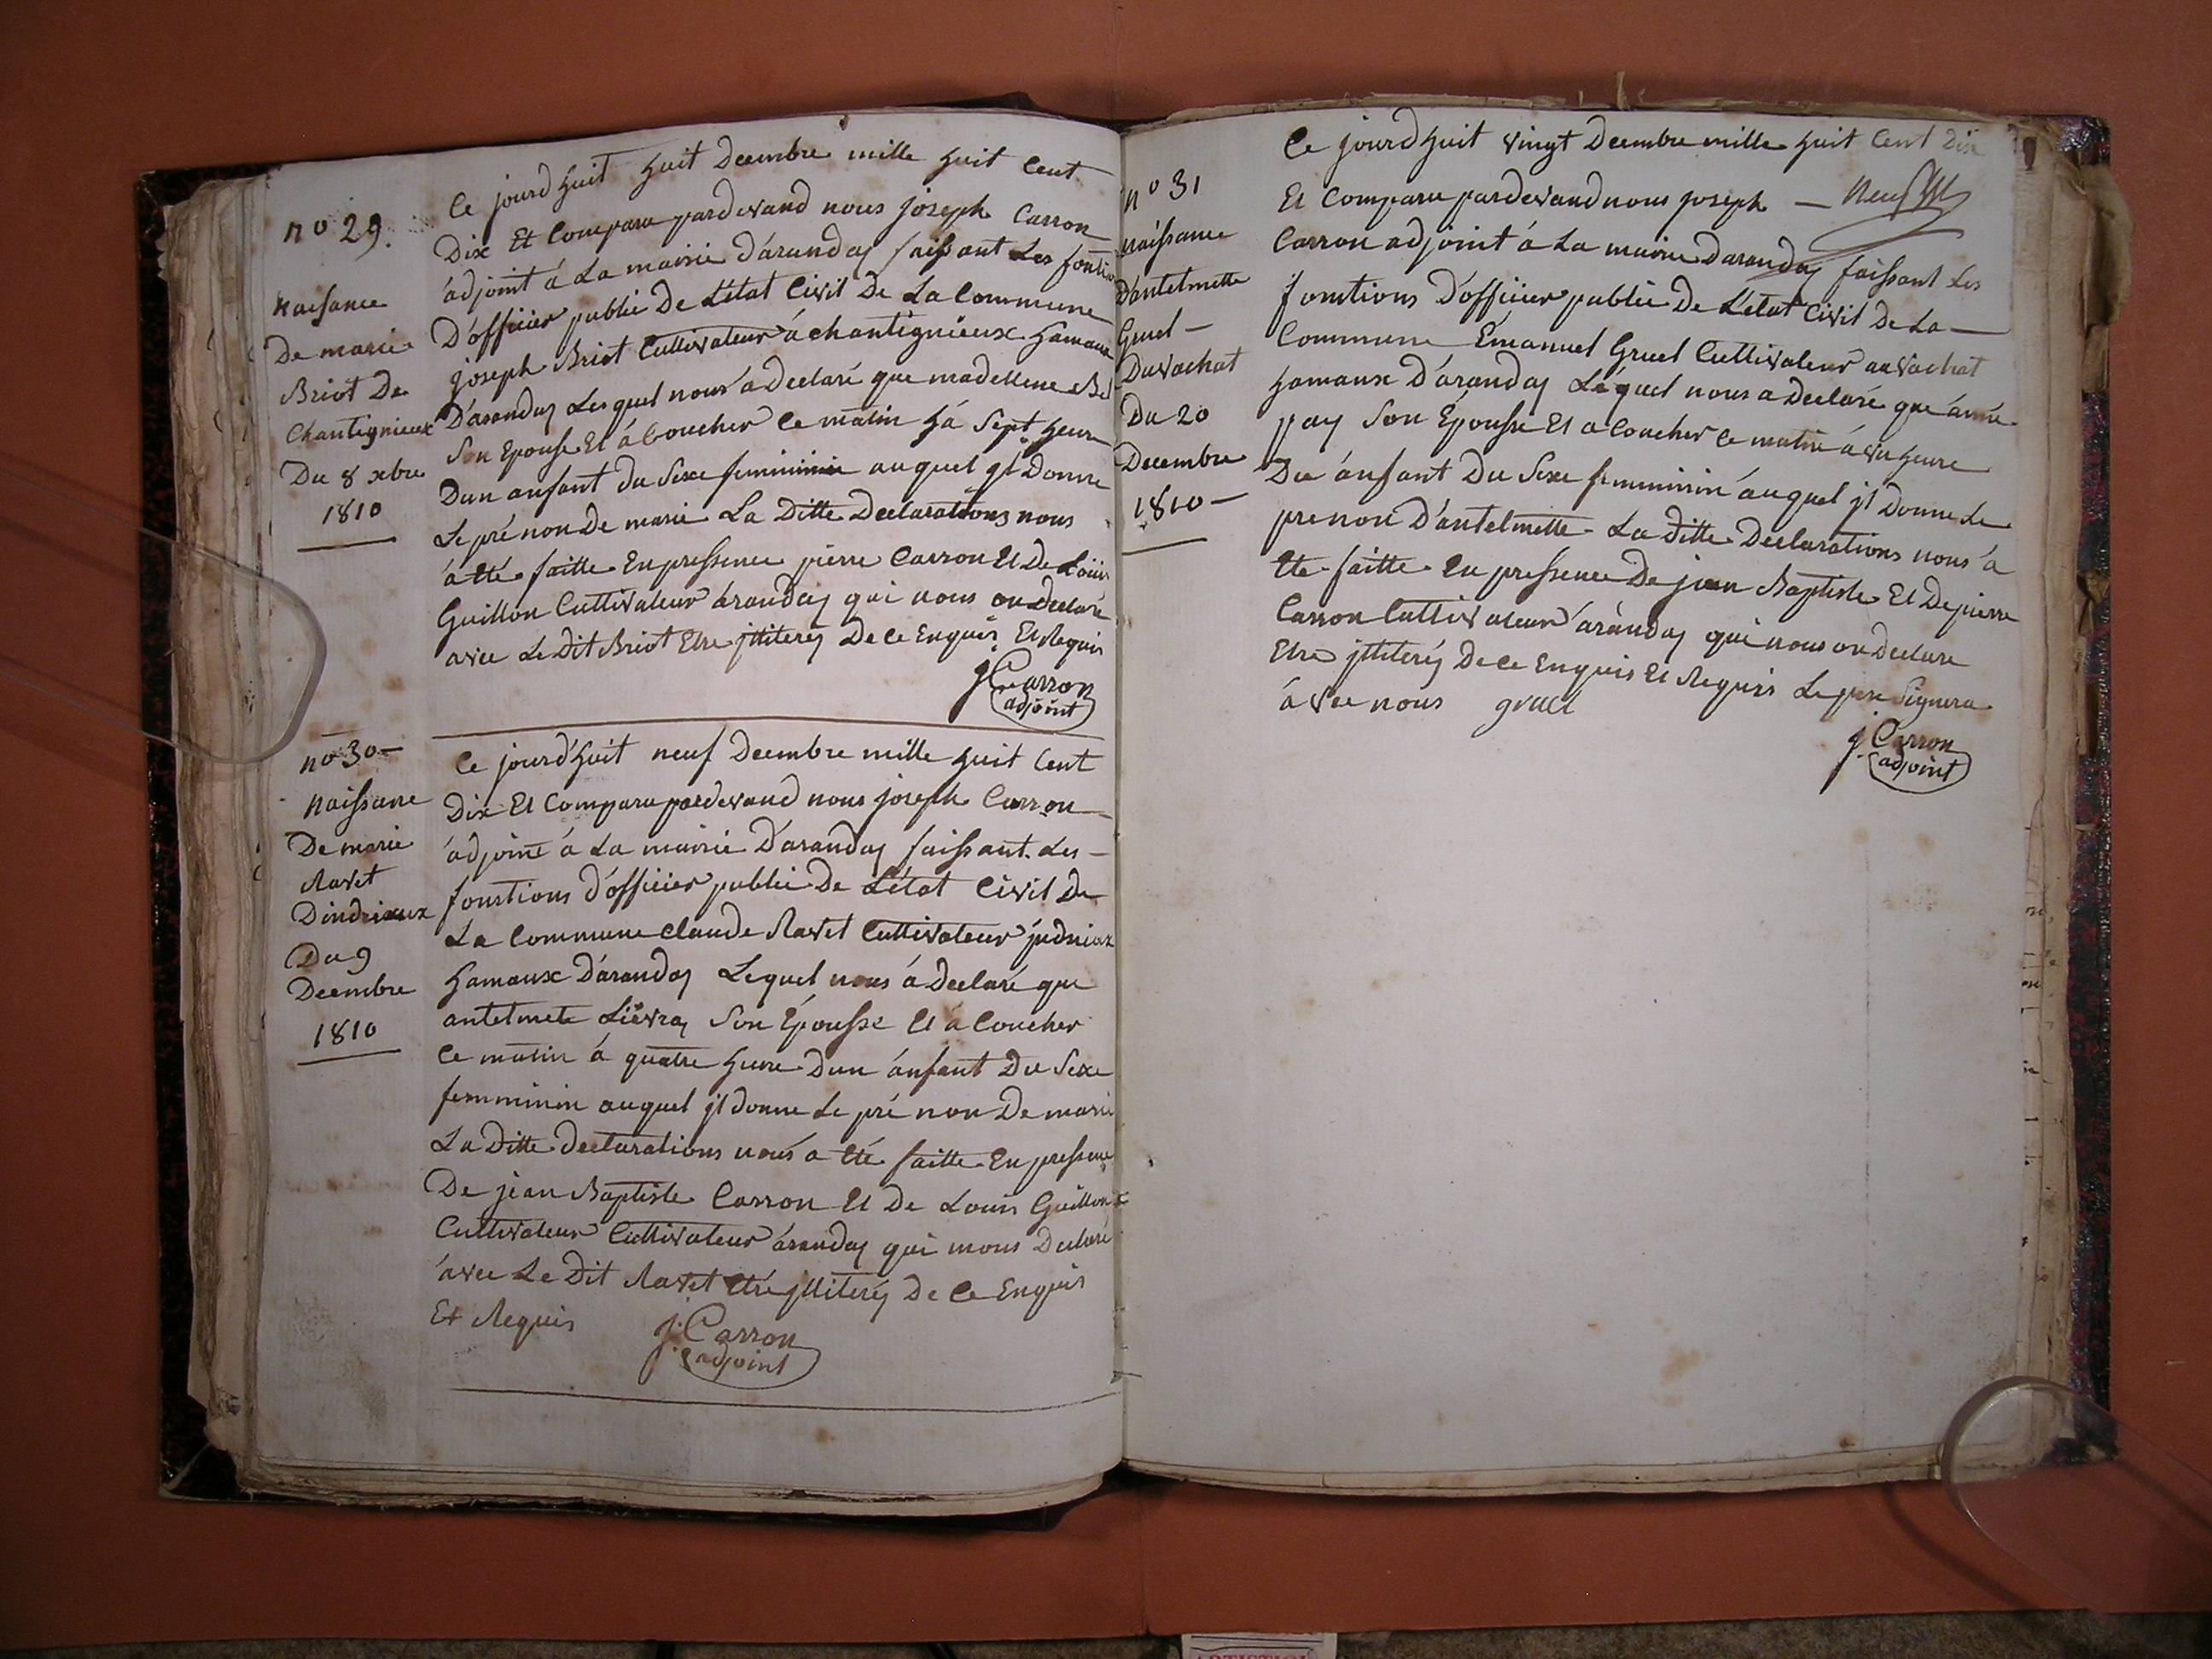 no 29.
naissance
De marie
Briot De
Chantignieux
Du 8 xbre
1810
Ce jourd huit huit Decembre mille huit Cent
Dix Et Comparu pardevand nous joseph Carron
adjoint á La mairie D'aranday faissant Les
D'officier public De L'état Civil De La Commune
joseph Briot Cultivateur á chantignieux hamaux
D'aranday Lesquel nous a declaré que madellene
Son Epouse Et á Coucher Ce matin há Sept heure
Dun anfant du Sexe feminimin auquel jl Donne
Le pré non De marie La Ditte Declarations nous
á été faitte En pressence pierre Carron Et De Louis
Guillon Cultivateur áranday qui nous on declaré
avec Le Dit Briot Etre jlliterés De Ce Enquis Et Requis
J Carron
adjoint
no 30
Naissane
De marie
Ravet
Dindrieux
Du 9
Decembre
1810
Ce jourd'huit neuf Decembre mille huit Cent
Dix Et Comparu pardevand nous joseph Carron
adjoint á La mairie D'aranday faissant Les
fonctions d'officier public De L'état Civil De
La Commune Claude Ravet Cultivateur
hamaux D'aranday Lequel nous á Declaré que
antelmete Liévray Son Épousse Et á Coucher
Ce matin á quatre heure Dun ánfant Du Sexe
femminin auquel jl donne Le pré non De marie
La Ditte declarations nous a été faitte En pressence
De jean Baptiste Carron Et De Louis Guillon
Cultivateur Cultivateur áranday qui mous Declaré
ávec Le Dit Ravet Etré jlliterés De Ce Enquis
Et Requis
j. Carron
adjoint
no 31
naissance
Dantelmette
Gruel
Duvachat
Du 20
Decembre
1810
Ce jourd huit vingt Decembre mille huit Cent Dix
Et Comparu pardevand nous joseph
Carron adjoint á La mairie Daranday faissant Les
fonctions D'officier public De L'état Civil De La
Commune Émanuel Gruel Cultivateur au vachat
hamaux D'aranday Léquel nous a Declaré que ánne
pay Son Épousse Et a Coucher Ce matin á heure
Du ánfant Du Sexe femminin áuquel jl Donne Le
prenon D'antelmette La Ditte Declarations nous á
été faitte En pressence De jean Baptiste Et De pierre
Carron Cultivateur áránday qui nous on Declare
Etre jlliterés De Ce Enquis Et Requis Le pere Signera
á vec nous gruel
j. Carron
adjoint